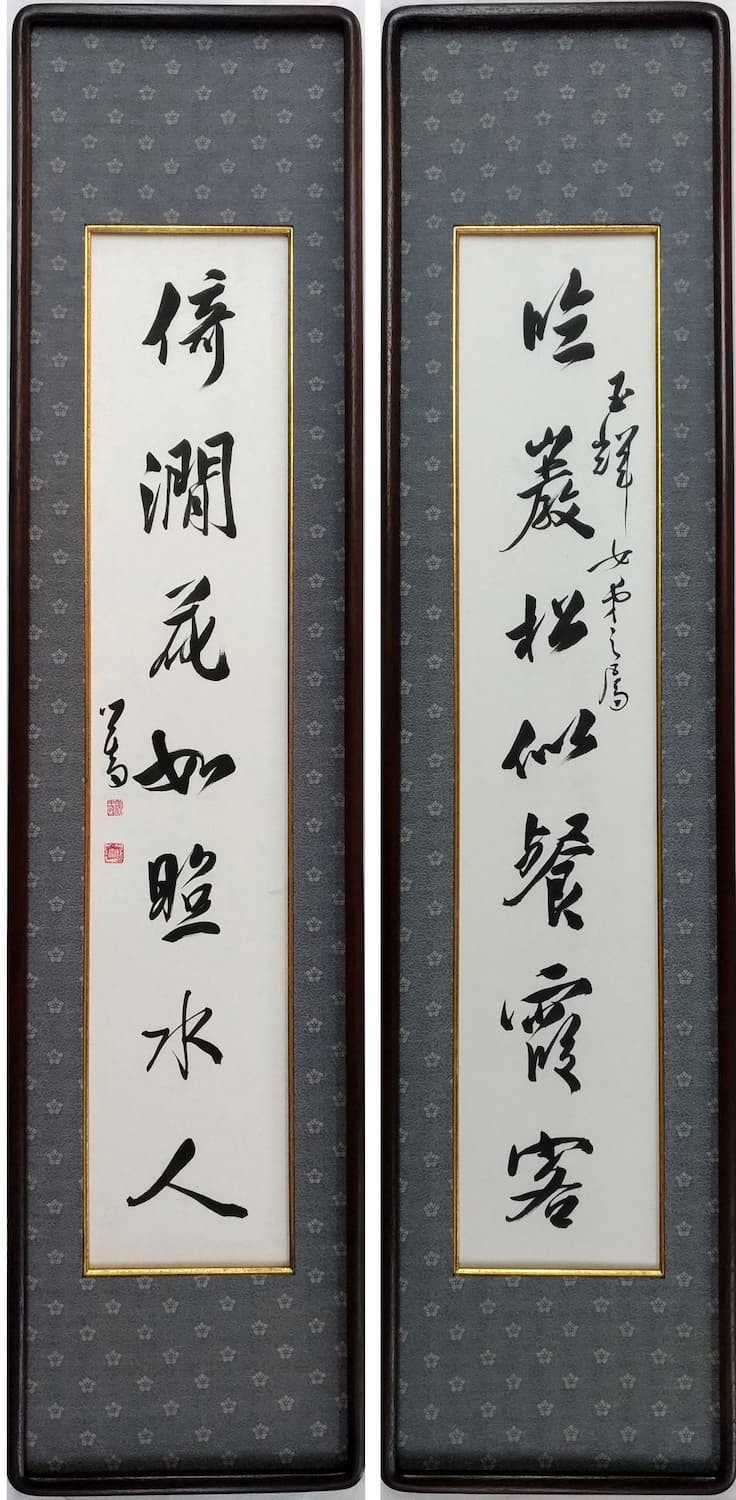 臨巖松似餐霞客
玉輝女弟之屬
倚澗花如照水人
心畬